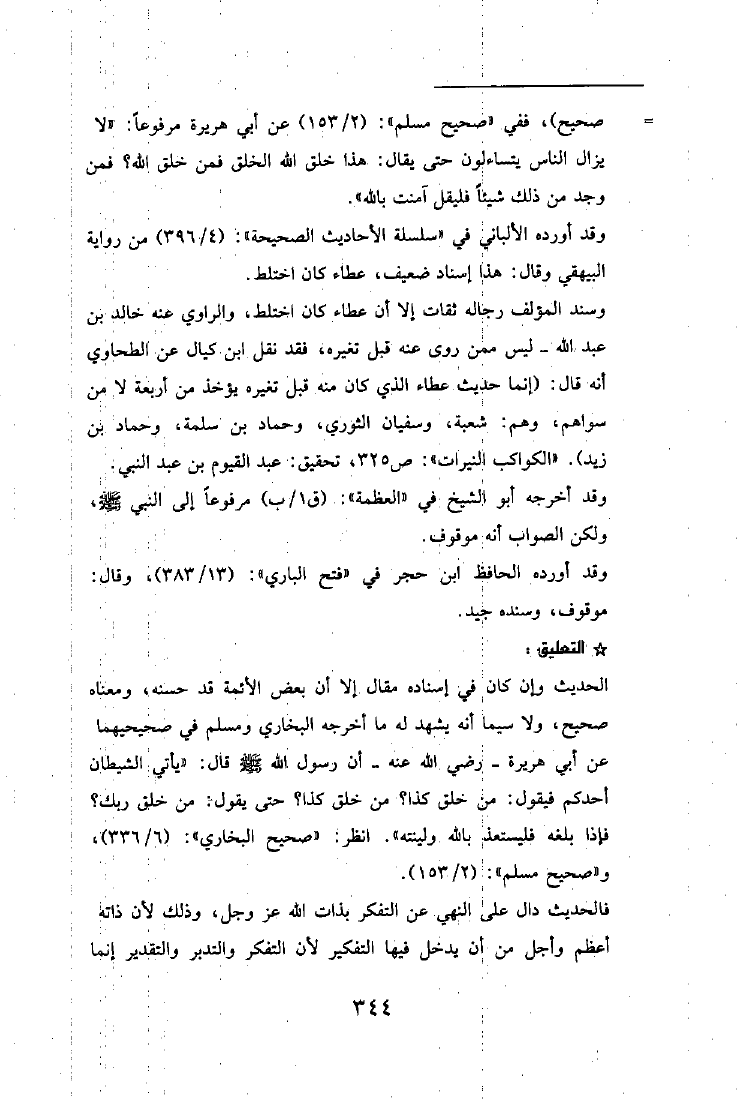 = صحيح)، ففي «صحيح مسلم»: (١٥٣/٢) عن أبي هريرة مرفوعاً: «لا
يزال الناس يتساءلون حتى يقال: هذا خلق الله الخلق فمن خلق الله؟ فمن
وجد من ذلك شيئاً فليقل آمنت بالله».
وقد أورده الألباني في «سلسلة الأحاديث الصحيحة»: (٣٩٦/٤) من رواية
البيهقي وقال: هذا إسناد ضعيف، عطاء كان اختلط.
وسند المؤلف رجاله ثقات إلا أن عطاء كان اختلط، والراوي عنه خالد بن
عبد الله ـ ليس ممن روى عنه قبل تغيره، فقد نقل ابن كيال عن الطحاوي
أنه قال: (إنما حديث عطاء الذي كان منه قبل تغيره يؤخذ من أربعة لا من
سواهم، وهم: شعبة، وسفيان الثوري، وحماد بن سلمة، وحماد بن
زيد). «الكواكب النيرات»: ص٣٢٥، تحقيق: عبد القيوم بن عبد النبي.
وقد أخرجه أبو الشيخ في «العظمة»: (ق١/ب) مرفوعاً إلى النبي ﷺ،
ولكن الصواب أنه موقوف.
وقد أورده الحافظ ابن حجر في «فتح الباري»: (٣٨٣/١٣)، وقال:
موقوف، وسنده جيد.
☆ التعليق:
الحديث وإن كان في إسناده مقال إلا أن بعض الأئمة قد حسنه، ومعناه
صحيح، ولا سيما أنه يشهد له ما أخرجه البخاري ومسلم في صحيحيهما
عن أبي هريرة ـ رضي الله عنه ـ أن رسول الله ﷺ قال: «يأتي الشيطان
أحدكم فيقول: من خلق كذا؟ من خلق كذا؟ حتى يقول: من خلق ربك؟
فإذا بلغه فليستعذ بالله ولينته». انظر: «صحيح البخاري»: (٣٣٦/٦)،
و«صحيح مسلم»: (١٥٣/٢).
فالحديث دال على النهي عن التفكر بذات الله عز وجل، وذلك لأن ذاته
أعظم وأجل من أن يدخل فيها التفكير لأن التفكر والتدبر والتقدير إنما
٣٤٤